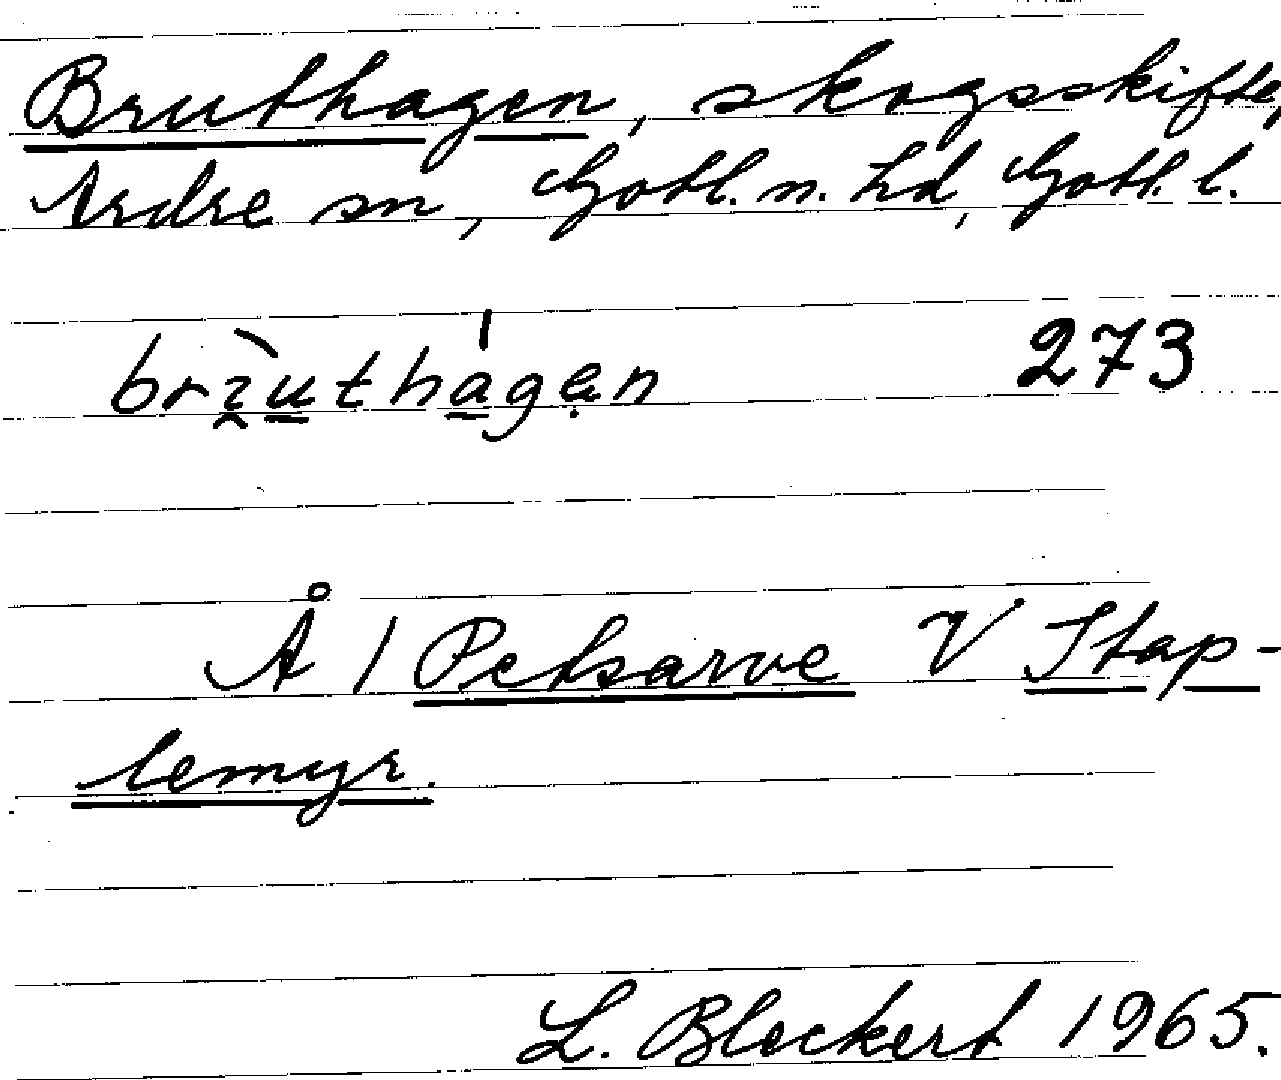 Bruthagen, skogsskifte,
Ardre sn, Gotl. n. hd, Gotl. l.
bràuthágen 273
Å 1 Petsarve V Stap-
lemyr.
L. Blockert 1965.